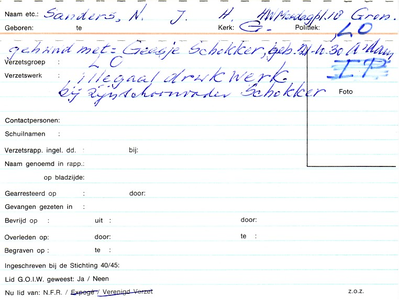 Naam etc.: Sanders, N. J. H. Gron.
Geboren: te Kerk: G. Politiek: LO
gehuwd met = Geesje Schokker, geb. A'dam
Verzetsgroep : LO IP
Verzetswerk : Illegaal drukwerk.
bij zijn schoonvader Schokker
Foto
Contactpersonen:
Schuilnaam :
Verzetsrapp. ingel. dd. : bij:
Naam genoemd in rapp.:
op bladzijde:
Gearresteerd op : door:
Gevangen gezeten in :
Bevrijd op : uit : door:
Overleden op: door: te :
Begraven op : te :
Ingeschreven bij de Stichting 40/45:
Lid G.O.I.W. geweest: Ja / Neen
Nu lid van: N.F.R. / Expogé / Verenigd Verzet z.o.z.